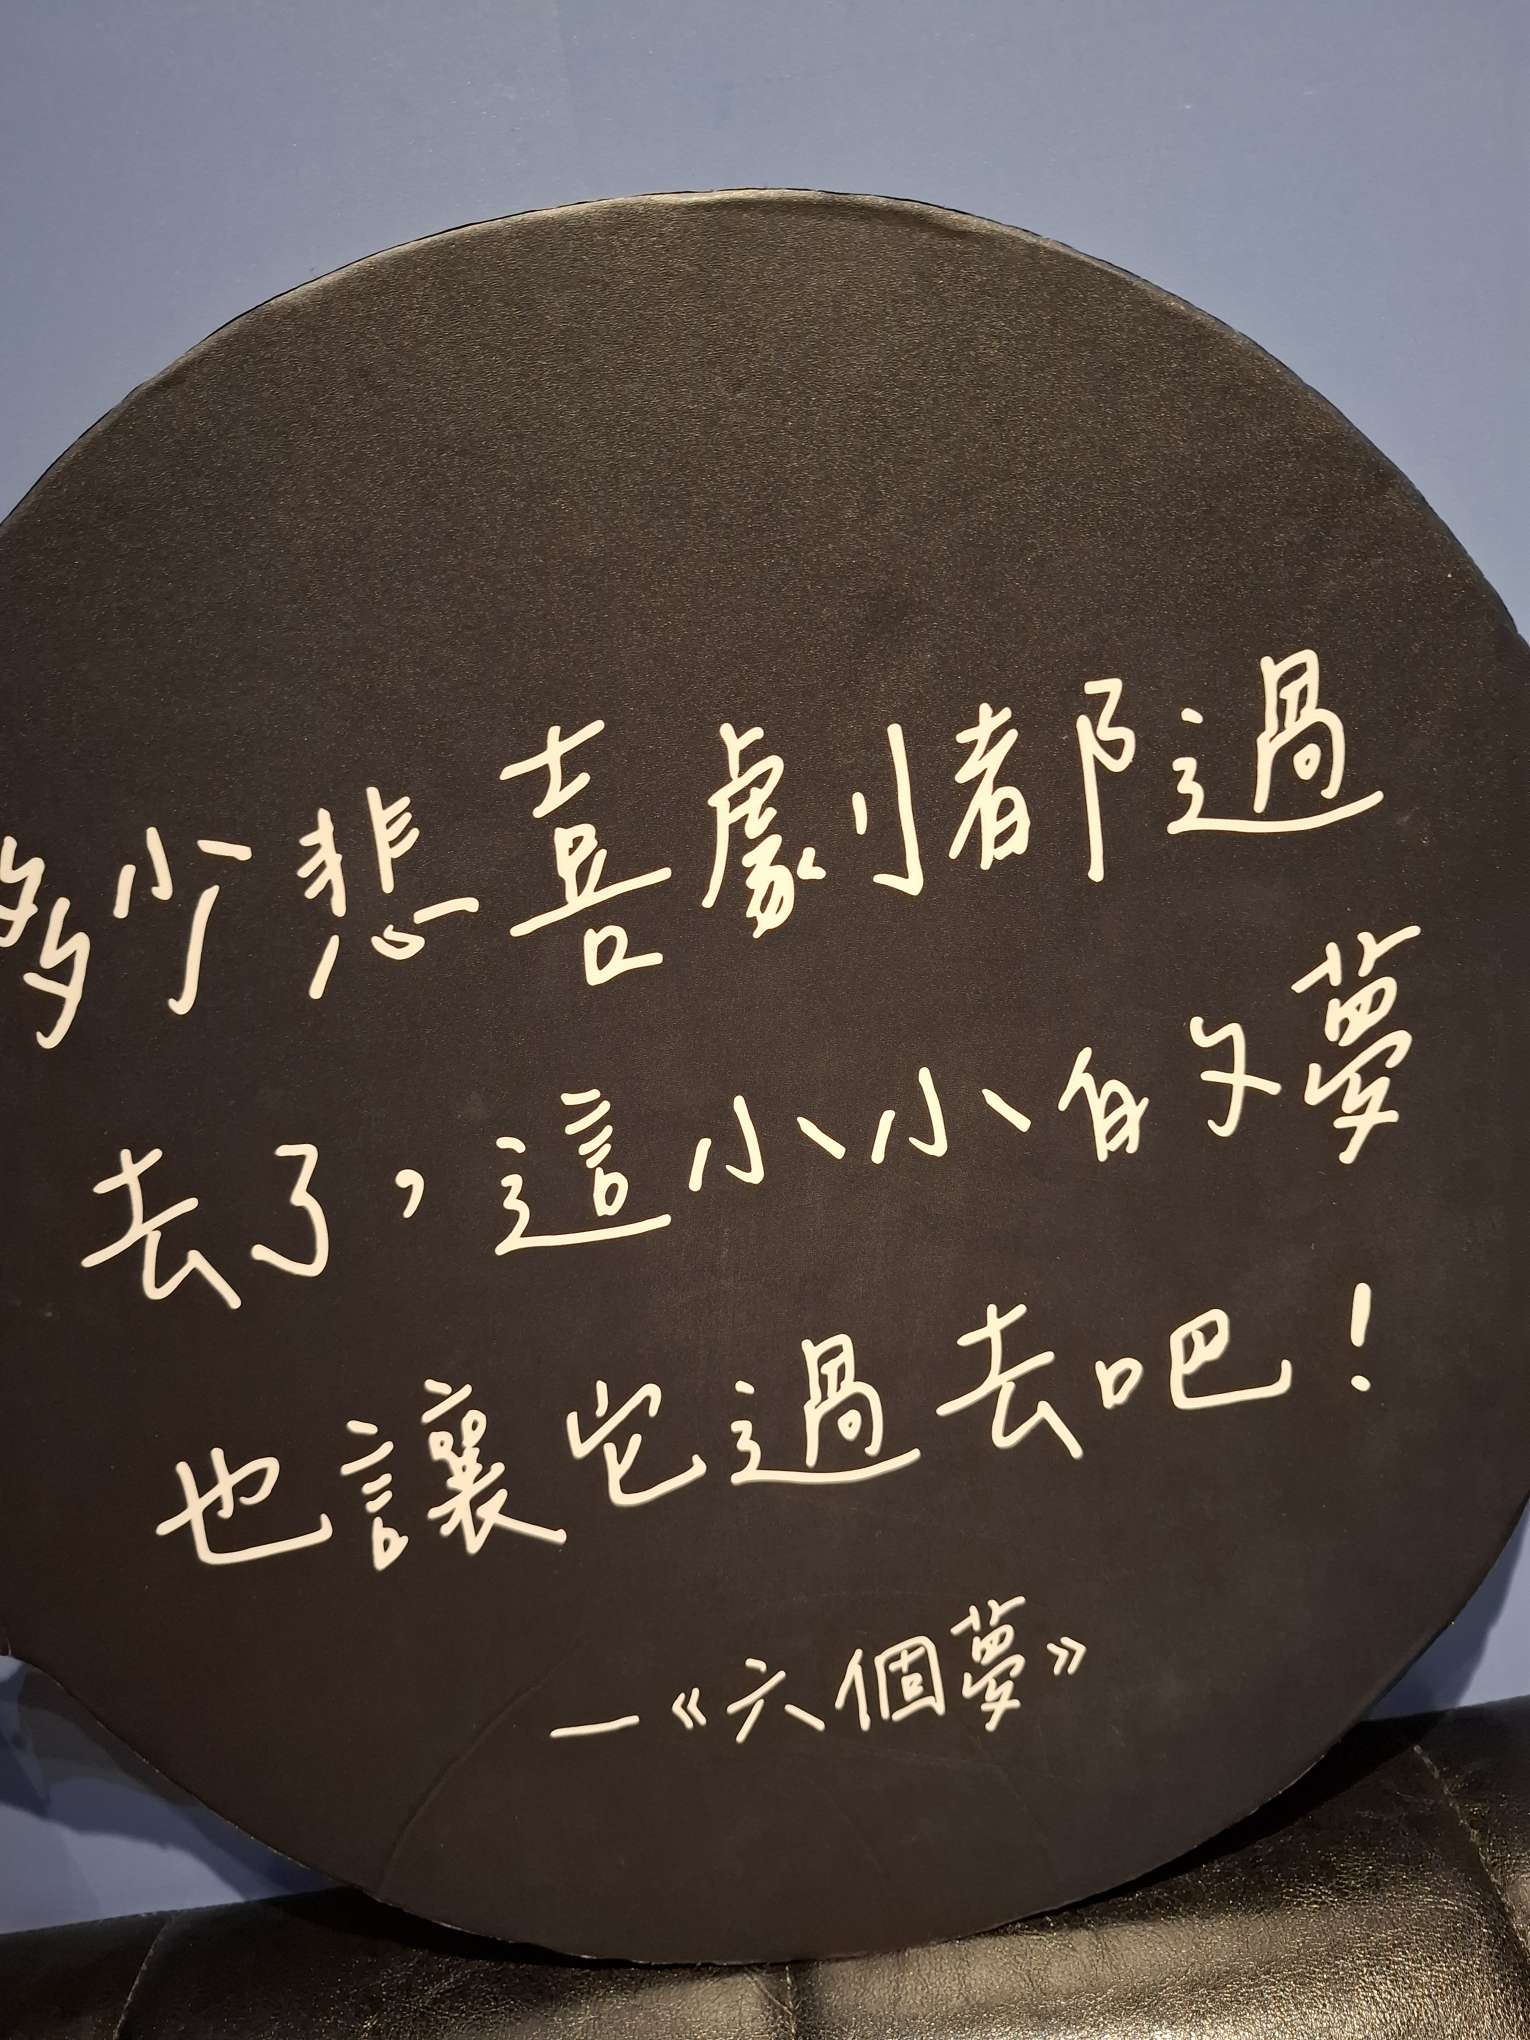 多少悲喜劇都過
去了，這小小的夢
也讓它過去吧！
—《六個夢》